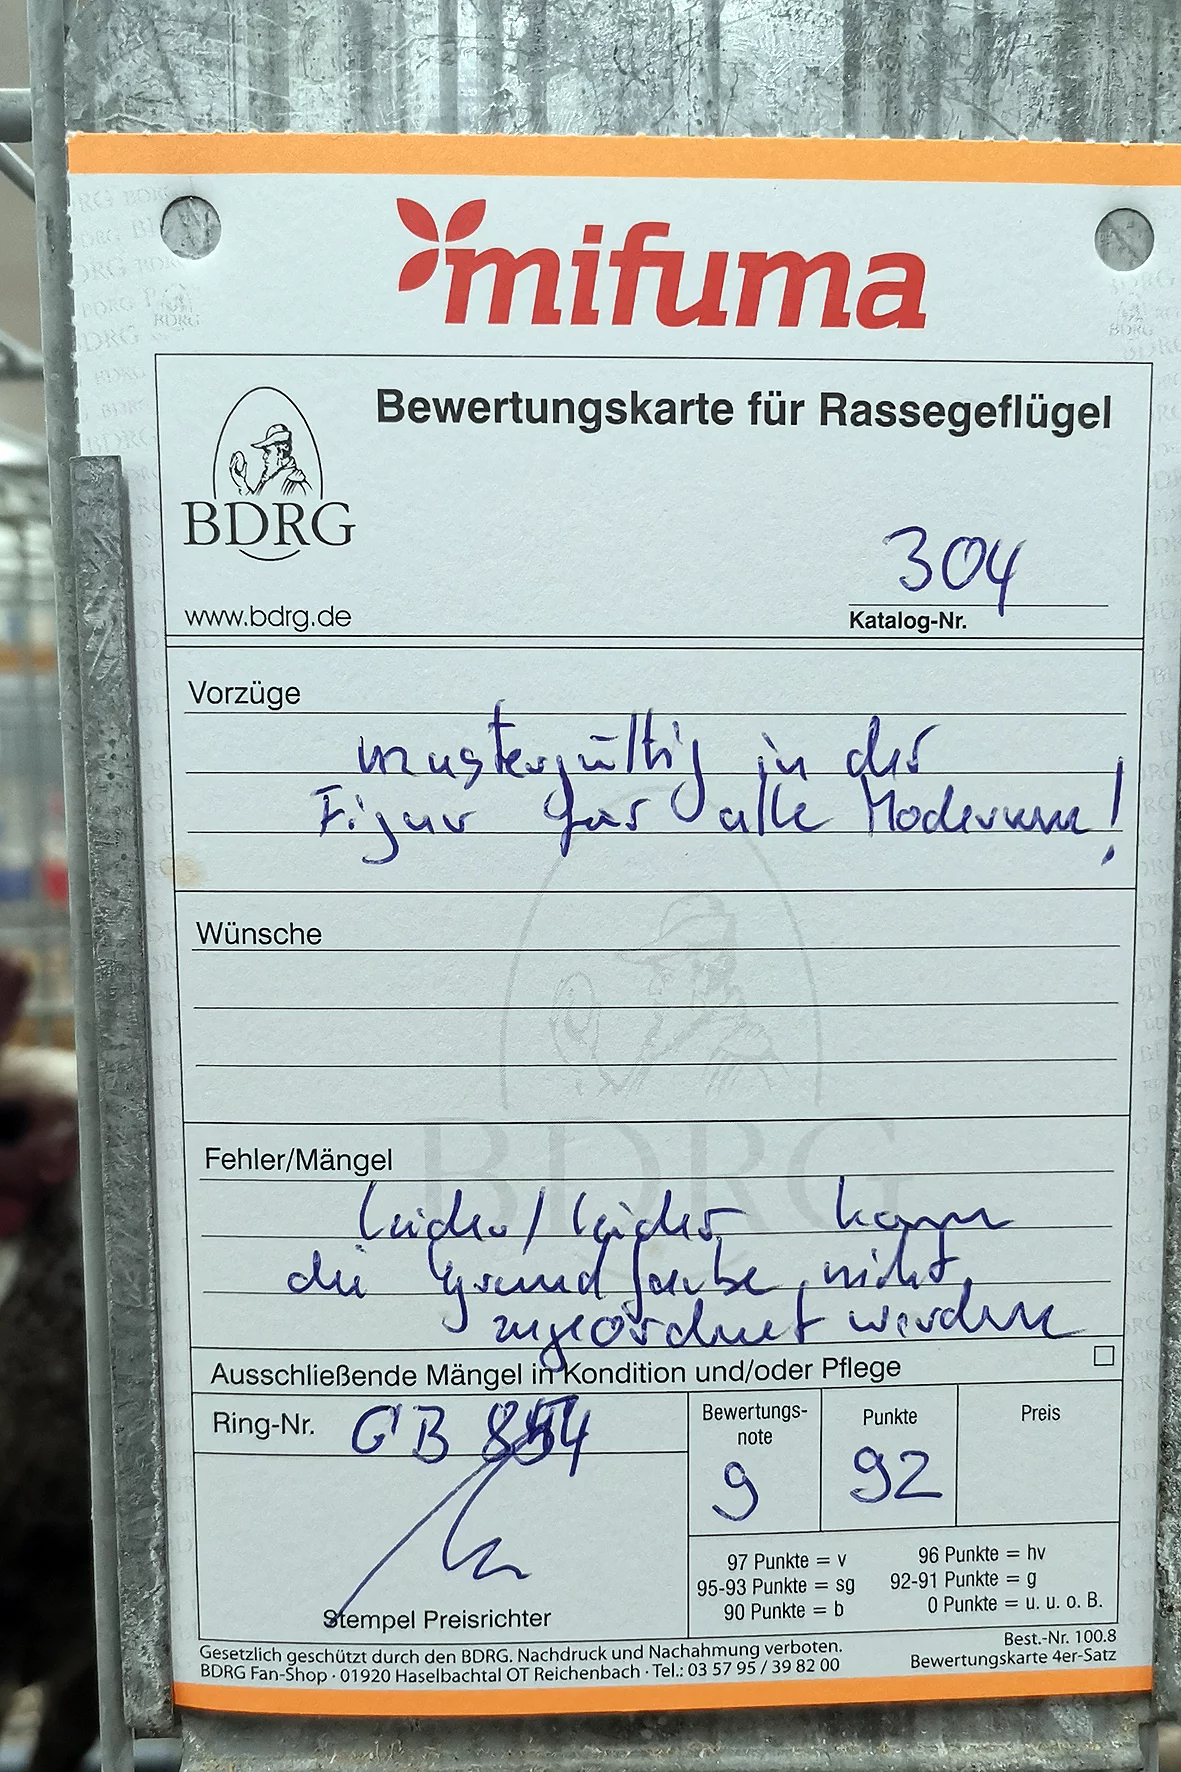 mifuma
Bewertungskarte für Rassegeflügel
BDRG
www.bdrg.de
304
Katalog-Nr.
Vorzüge
mustergültig in der
Figur für alle Modernen!
Wünsche
BDRG
Fehler/Mängel
leider/leider kann
die Grundfarbe nicht
zugeordnet werden
Ausschließende Mängel in Kondition und/oder Pflege
Ring-Nr. GB 854
Bewertungs-
note
9
Punkte
92
Preis
97 Punkte = v
96 Punkte = hv
95-93 Punkte = sg
92-91 Punkte = g
90 Punkte = b
0 Punkte = u. u. o. B.
Stempel Preisrichter
Gesetzlich geschützt durch den BDRG. Nachdruck und Nachahmung verboten.
BDRG Fan-Shop · 01920 Haselbachtal OT Reichenbach · Tel.: 03 57 95 / 39 82 00
Best.-Nr. 100.8
Bewertungskarte 4er-Satz